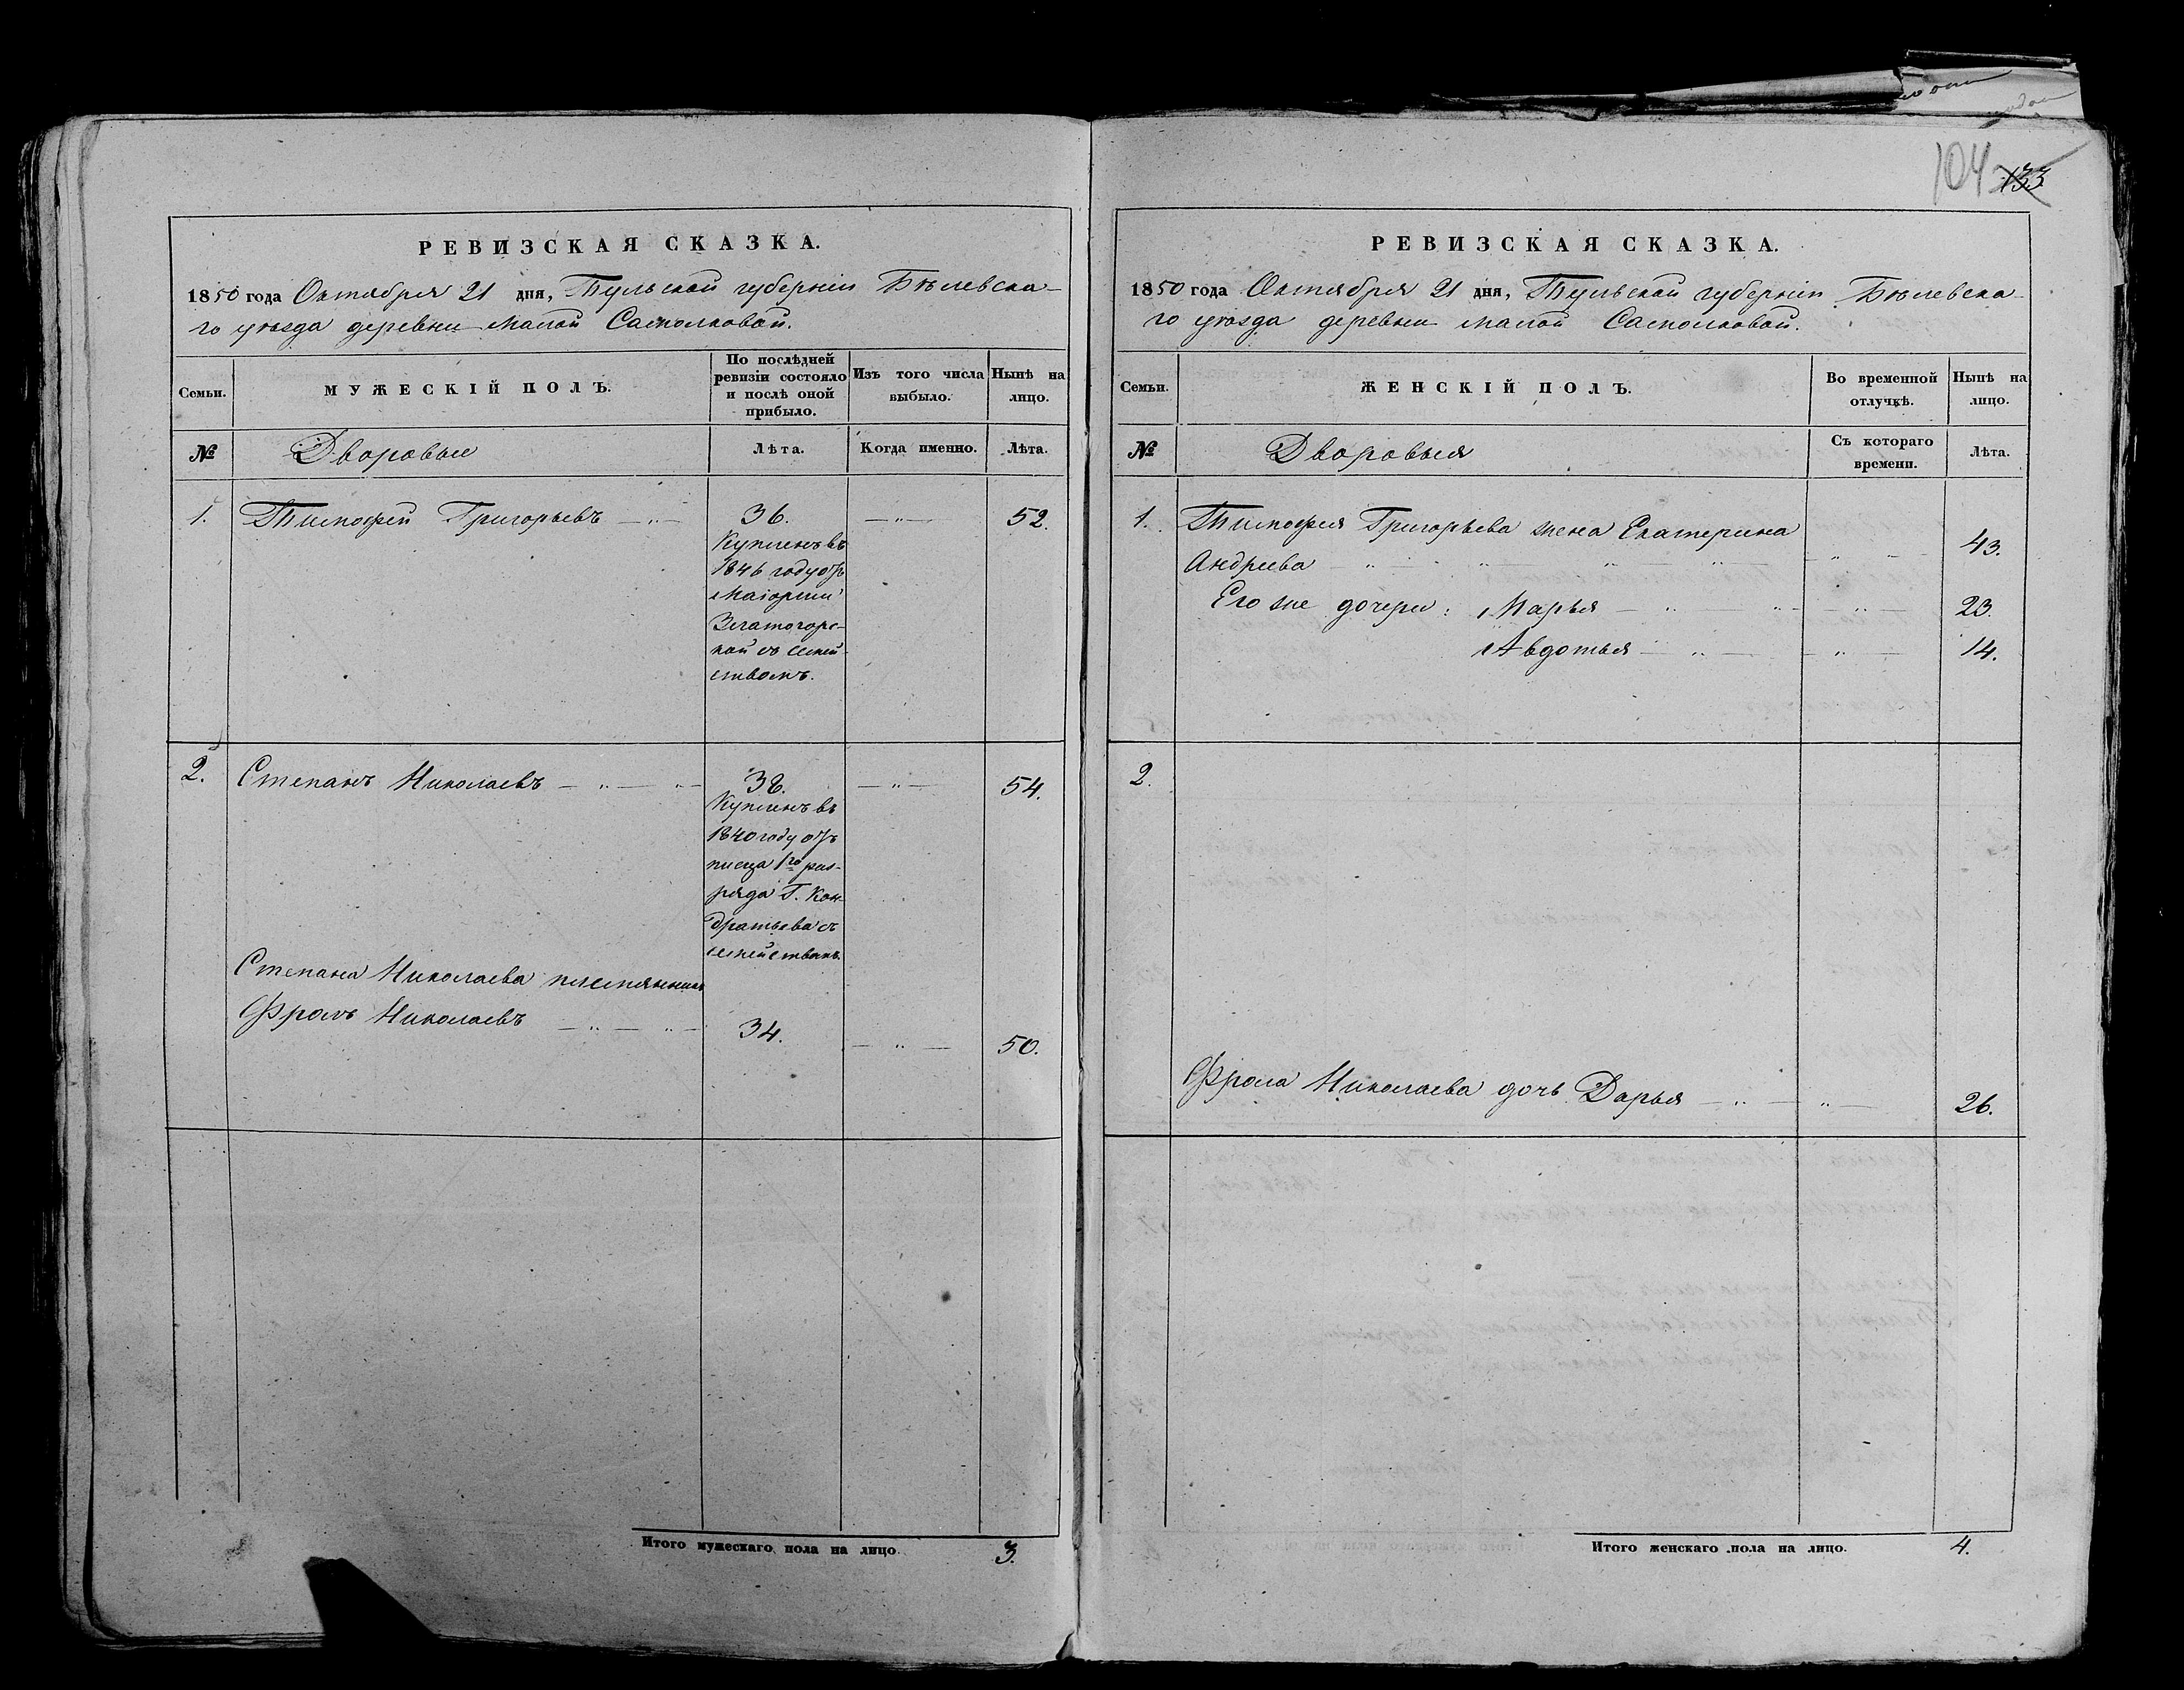 104 133
РЕВИЗСКАЯ СКАЗКА.
1850 года Октября 21 дня, Тульской губерніи Бѣлевска-
го уѣзда деревни Малой Самолковой.
Семьи.
МУЖЕСКІЙ ПОЛЪ.
По послѣдней
ревизіи состояло
и послѣ оной
прибыло.
Изъ того числа
выбыло.
Нынѣ на
лицо.
№
Дворовыи
Лѣта.
Когда именно.
Лѣта.
1. Тимофей Григорьевъ — „ — 36. — „ — 52.
Купленъ въ
1846 году отъ
Маіорши
Златогорс-
кой съ семей-
ствомъ.
2. Степанъ Николаевъ — „ — „ — 38. — „ — 54.
Купленъ въ
1840 году отъ
писца 1го раз-
ряда Г. Кон-
дратьева съ
семействомъ.
Степана Николаева племянникъ
Фролъ Николаевъ — „ — „ — 34. — „ — 50.
Итого мужескаго пола на лицо 3.
РЕВИЗСКАЯ СКАЗКА.
1850 года Октября 21 дня, Тульской губерніи Бѣлевска-
го уѣзда деревни Малой Самолковой.
Семьи.
ЖЕНСКІЙ ПОЛЪ.
Во временной
отлучкѣ.
Нынѣ на
лицо.
№
Дворовыя
Съ котораго
времени.
Лѣта.
1. Тимофея Григорьева жена Екатерина
Андреева — „ — „ — „ — „ — 43.
Его же дочери: Марья — „ — „ — „ — 23.
Авдотья — „ — „ — 14.
2.
Фрола Николаева дочь Дарья — „ — „ — 26.
Итого женскаго пола на лицо. 4.